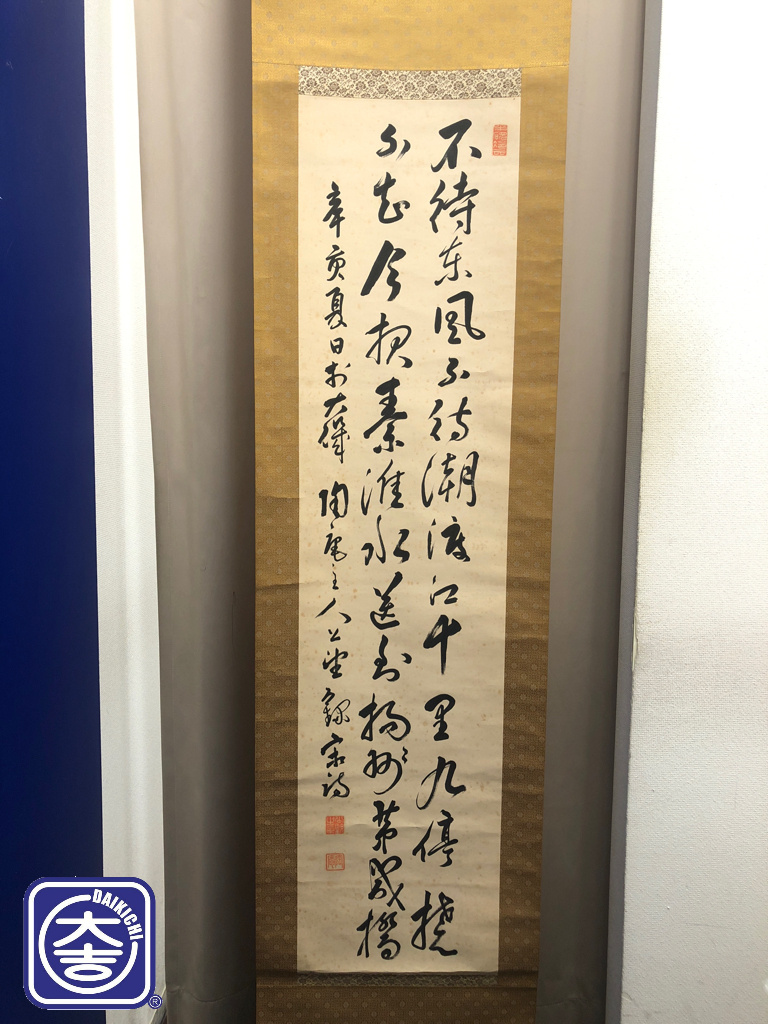 不待東風不待潮渡江十里九停橈
不知今夜秦淮水送到揚州第幾橋
辛亥夏日於大磯 陶庵主人公望 録宋詩
DAIKICHI
大吉
®